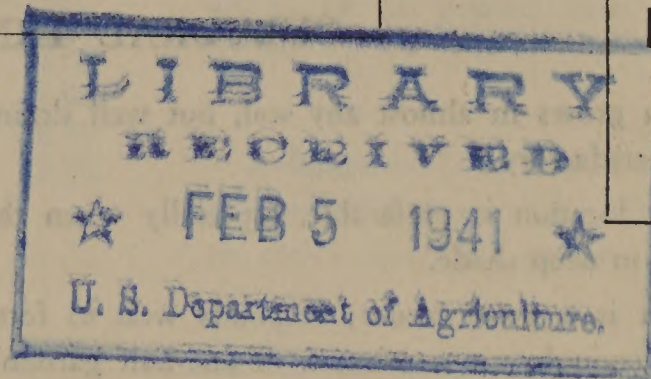 LIBRARY
RECEIVED
☆ FEB 5 1941 ☆
U. S. Department of Agriculture.